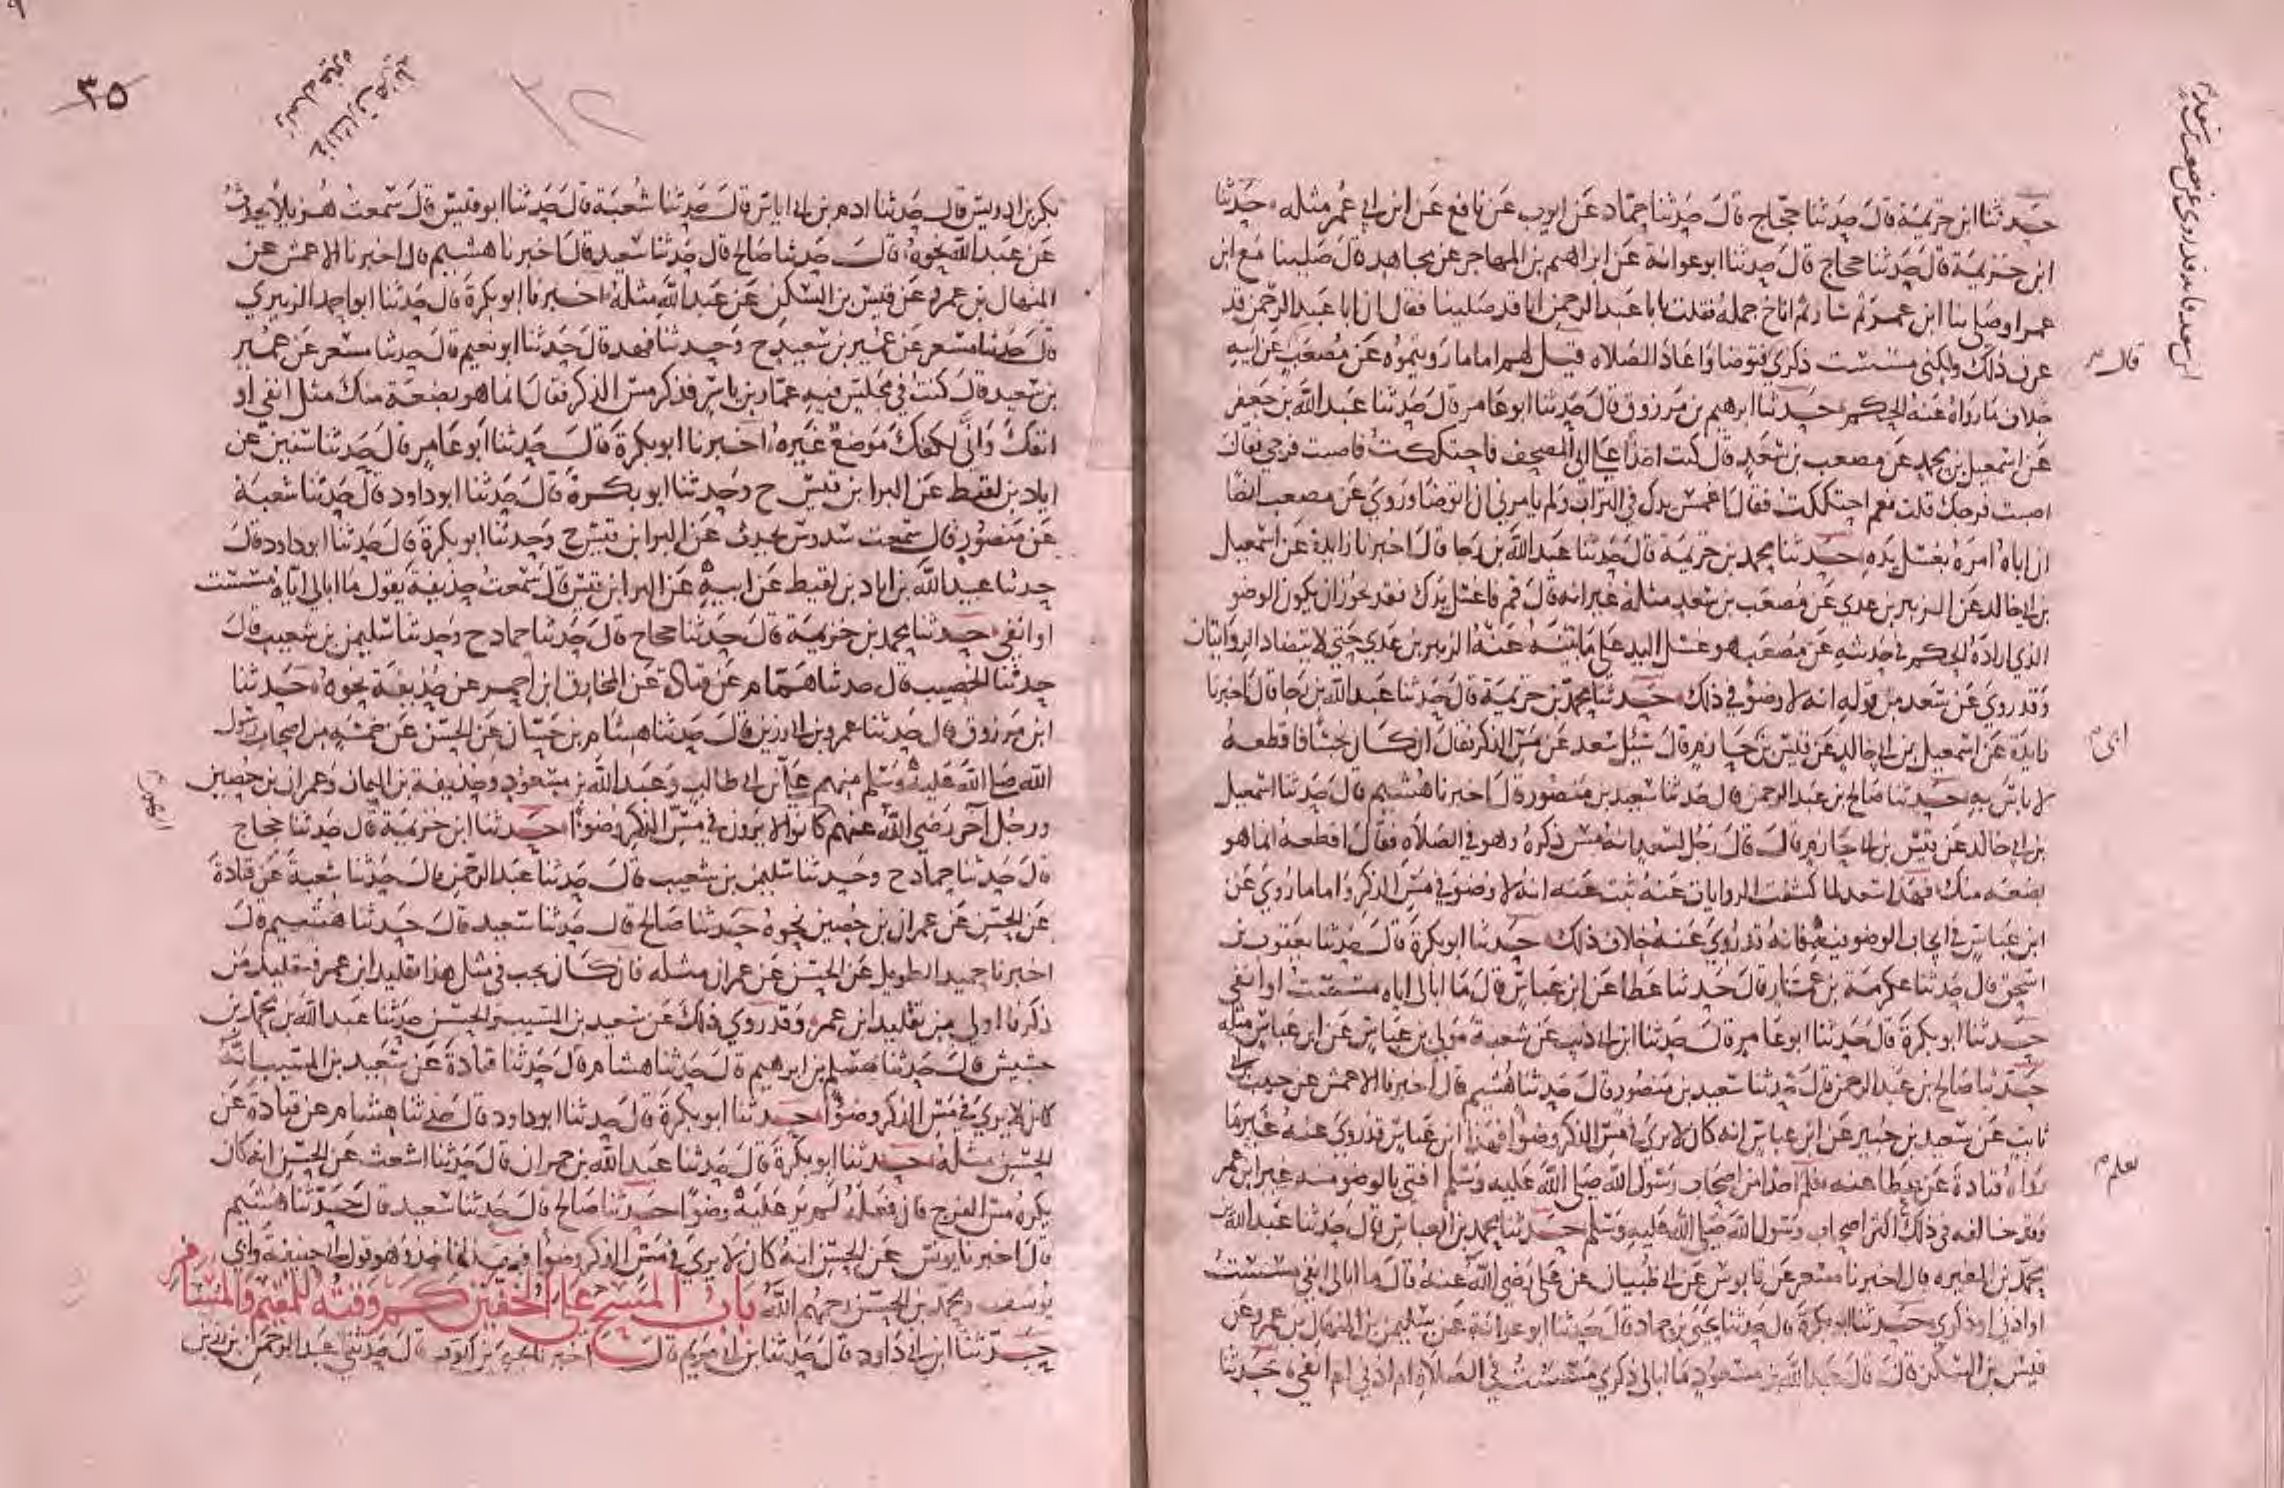 حدثنا ابن خزيمة قال حدثنا حجاج قال حدثنا حماد عن ايوب عن نافع عن ابن عمر مثله حدثنا
ابن خزيمة قال حدثنا حجاج قال حدثنا ابو عوانة عن ابراهيم بن المهاجر عن مجاهد قال صلينا مع ابن
عمر او صلى بنا ابن عمر ثم سار ثم اناخ جمله فقلت يابا عبد الرحمن انا قد صلينا فقال ان ابا عبد الرحمن قد
عرف ذلك ولكنى مسست ذكري فتوضا واعاد الصلاه قيل لهم اما ما رويتموه عن مصعب عن ابيه
خلاف ما رواه عنه الحكم حدثنا ابرهيم بن مرزوق قال حدثنا ابو عامر قال حدثنا عبد الله بن جعفر
عن اسمعيل بن محمد عن مصعب بن سعد قال كنت اخذا على ابي المصحف فاحتككت فاصبت فرجي فقال
اصبت فرجك قلت نعم احتككت فقال اغمس يدك في التراب ولم يامرني ان اتوضا وروي عن مصعب ايضا
ان اباه امره بغسل يده حدثنا محمد بن خزيمة قال حدثنا عبد الله بن رجا قال اخبرنا زايدة عن اسمعيل
بن ابي خالد عن الزبير بن عدي عن مصعب بن سعد مثله غير انه قال قم فاغسل يدك فقد يجوز ان يكون الوضو
الذي اراده الحكم في حديثه عن مصعب هو غسل اليد على ما بينه عنه الزبير بن عدي حتى لا يتضاد الروايتان
وقد روي عن سعد من قوله انه لا وضو في ذلك حدثنا محمد بن خزيمة قال حدثنا عبد الله بن رجا قال اخبرنا
زايدة عن اسمعيل بن ابي خالد عن قيس بن ابي حازم قال سئل سعد عن مس الذكر فقال ان كان نجسا فاقطعه
لا باس به حدثنا صالح بن عبد الرحمن قال حدثنا سعيد بن منصور قال اخبرنا هشيم قال حدثنا اسمعيل
بن ابي خالد عن قيس بن ابي حازم قال قال رجل لسعد انه مس ذكره وهو في الصلاه فقال اقطعه انما هو
بضعه منك فهذا سعد لما كشفت الروايات عنه ثبت عنه انه لا وضو في مس الذكر واما ما روي عن
ابن عباس في ايجاب الوضو فيه فانه قد روي عنه خلاف ذلك حدثنا ابو بكرة قال حدثنا يعقوب بن
اسحق قال حدثنا عكرمة بن عمار قال حدثنا عطا عن ابن عباس قال ما ابالي اياه مسست او انفي
حدثنا ابو بكرة قال حدثنا ابو عامر قال حدثنا ابن ابي ذيب عن شعبة مولى ابن عباس عن ابن عباس مثله
حدثنا صالح بن عبد الرحمن قال حدثنا سعيد بن منصور قال حدثنا هشيم قال اخبرنا الاعمش عن حبيب بن ابي
ثابت عن سعيد بن جبير عن ابن عباس انه كان لا يرى في مس الذكر وضوا فهذا ابن عباس قد روي عنه غير ما
رواه قتادة عن عطا عنه فلم احدا من اصحاب رسول الله صلى الله عليه وسلم افتى بالوضو منه غير ابن عمر
وقد خالفه في ذلك اكثر اصحاب رسول الله صلى الله عليه وسلم حدثنا محمد بن العباس قال حدثنا عبد الله بن
محمد بن المغيره قال اخبرنا مسعر عن قابوس عن ابي ظبيان عن علي رضي الله عنه قال ما ابالي انفي مسست
او اذني او ذكري حدثنا ابو بكرة قال حدثنا يحيى بن حماد قال حدثنا ابو عوانة عن سليمن بن المنهال بن عمرو عن
قيس بن السكن قال قال عبد الله بن مسعود ما ابالي ذكري مسست في الصلاة ام اذني ام انفي حدثنا
قال
ابى
نعلم
٣٥
بكر بن ادريس قال حدثنا ادم بن ابي اياس قال حدثنا شعبة قال حدثنا ابو قيس قال سمعت هزيلا يحدث
عن عبد الله نحوه قال حدثنا صالح قال حدثنا سعيد قال اخبرنا هشيم قال اخبرنا الاعمش عن
المنهال بن عمرو عن قيس بن السكن عن عبد الله مثله اخبرنا ابو بكرة قال حدثنا ابو احمد الزبيري
قال حدثنا مسعر عن عمير بن سعيد ح وحدثنا فهد قال حدثنا ابو نعيم قال حدثنا مسعر عن عمير
بن سعيد قال كنت في مجلس فيه عمار بن ياسر فذكر مس الذكر فقال انما هو بضعة منك مثل انفي او
انفك وان لكفك موضع غيره اخبرنا ابو بكرة قال حدثنا ابو عامر قال حدثنا سفين عن
اياد بن لقيط عن البرا بن قيس ح وحدثنا ابو بكرة قال حدثنا ابو داود قال حدثنا شعبة
عن منصور قال سمعت سدوس يحدث عن البرا بن قيس ح وحدثنا ابو بكرة قال حدثنا ابو داود قال
حدثنا عبيد الله بن اياد بن لقيط عن ابيه عن البرا بن قيس قال سمعت حذيفة يقول ما ابالي اياه مسست
او انفي حدثنا محمد بن خزيمة قال حدثنا حجاج قال حدثنا حماد ح وحدثنا سليمن بن شعيب قال
حدثنا الخصيب قال حدثنا همام عن قتادة عن المخارق ابن احمر عن حذيفة نحوه حدثنا
ابن مرزوق قال حدثنا عمرو بن ابي رزين قال حدثنا هشام بن حسان عن الحسن عن خمسه من اصحاب رسول
الله صلى الله عليه وسلم منهم علي بن ابي طالب وعبد الله بن مسعود وحذيفة بن اليمان وعمران بن حصين
ورجل آخر رضي الله عنهم كانوا لا يرون في مس الذكر وضوءا حدثنا ابن خزيمة قال حدثنا حجاج
قال حدثنا حماد ح وحدثنا سليمن بن شعيب قال حدثنا عبد الرحمن قال حدثنا شعبة عن قتادة
عن الحسن عن عمران بن حصين نحوه حدثنا صالح قال حدثنا سعيد قال حدثنا هشيم قال
اخبرنا حميد الطويل عن الحسن عن عمران مثله فان كان يجب في مثل هذا تقليد ابن عمر فتقليد من
ذكرنا اولى من تقليد ابن عمر وقد روي ذلك عن سعيد بن المسيب والحسن حدثنا عبد الله بن محمد بن
خشيش قال حدثنا مسلم بن ابرهيم قال حدثنا هشام قال حدثنا قتادة عن سعيد بن المسيب انه
كان لا يرى في مس الذكر وضوا حدثنا ابو بكرة قال حدثنا ابو داود قال حدثنا هشام عن قتادة عن
الحسن مثله حدثنا ابو بكرة قال حدثنا عبد الله بن حمران قال حدثنا اشعث عن الحسن انه كان
يكره مس الفرج فان فعله لم ير عليه وضوا حدثنا صالح قال حدثنا سعيد قال حدثنا هشيم
قال اخبرنا يونس عن الحسن انه كان لا يرى في مس الذكر وضوا فبهذا ناخذ وهو قول ابي حنيفة وابي
يوسف ومحمد بن الحسن رحمهم الله باب المسح على الخفين كم وقته للمقيم والمسافر
حدثنا ابن ابي داود قال حدثنا ابن ابي مريم قال اخبرنا يحيى بن ايوب قال حدثني عبد الرحمن بن رزين